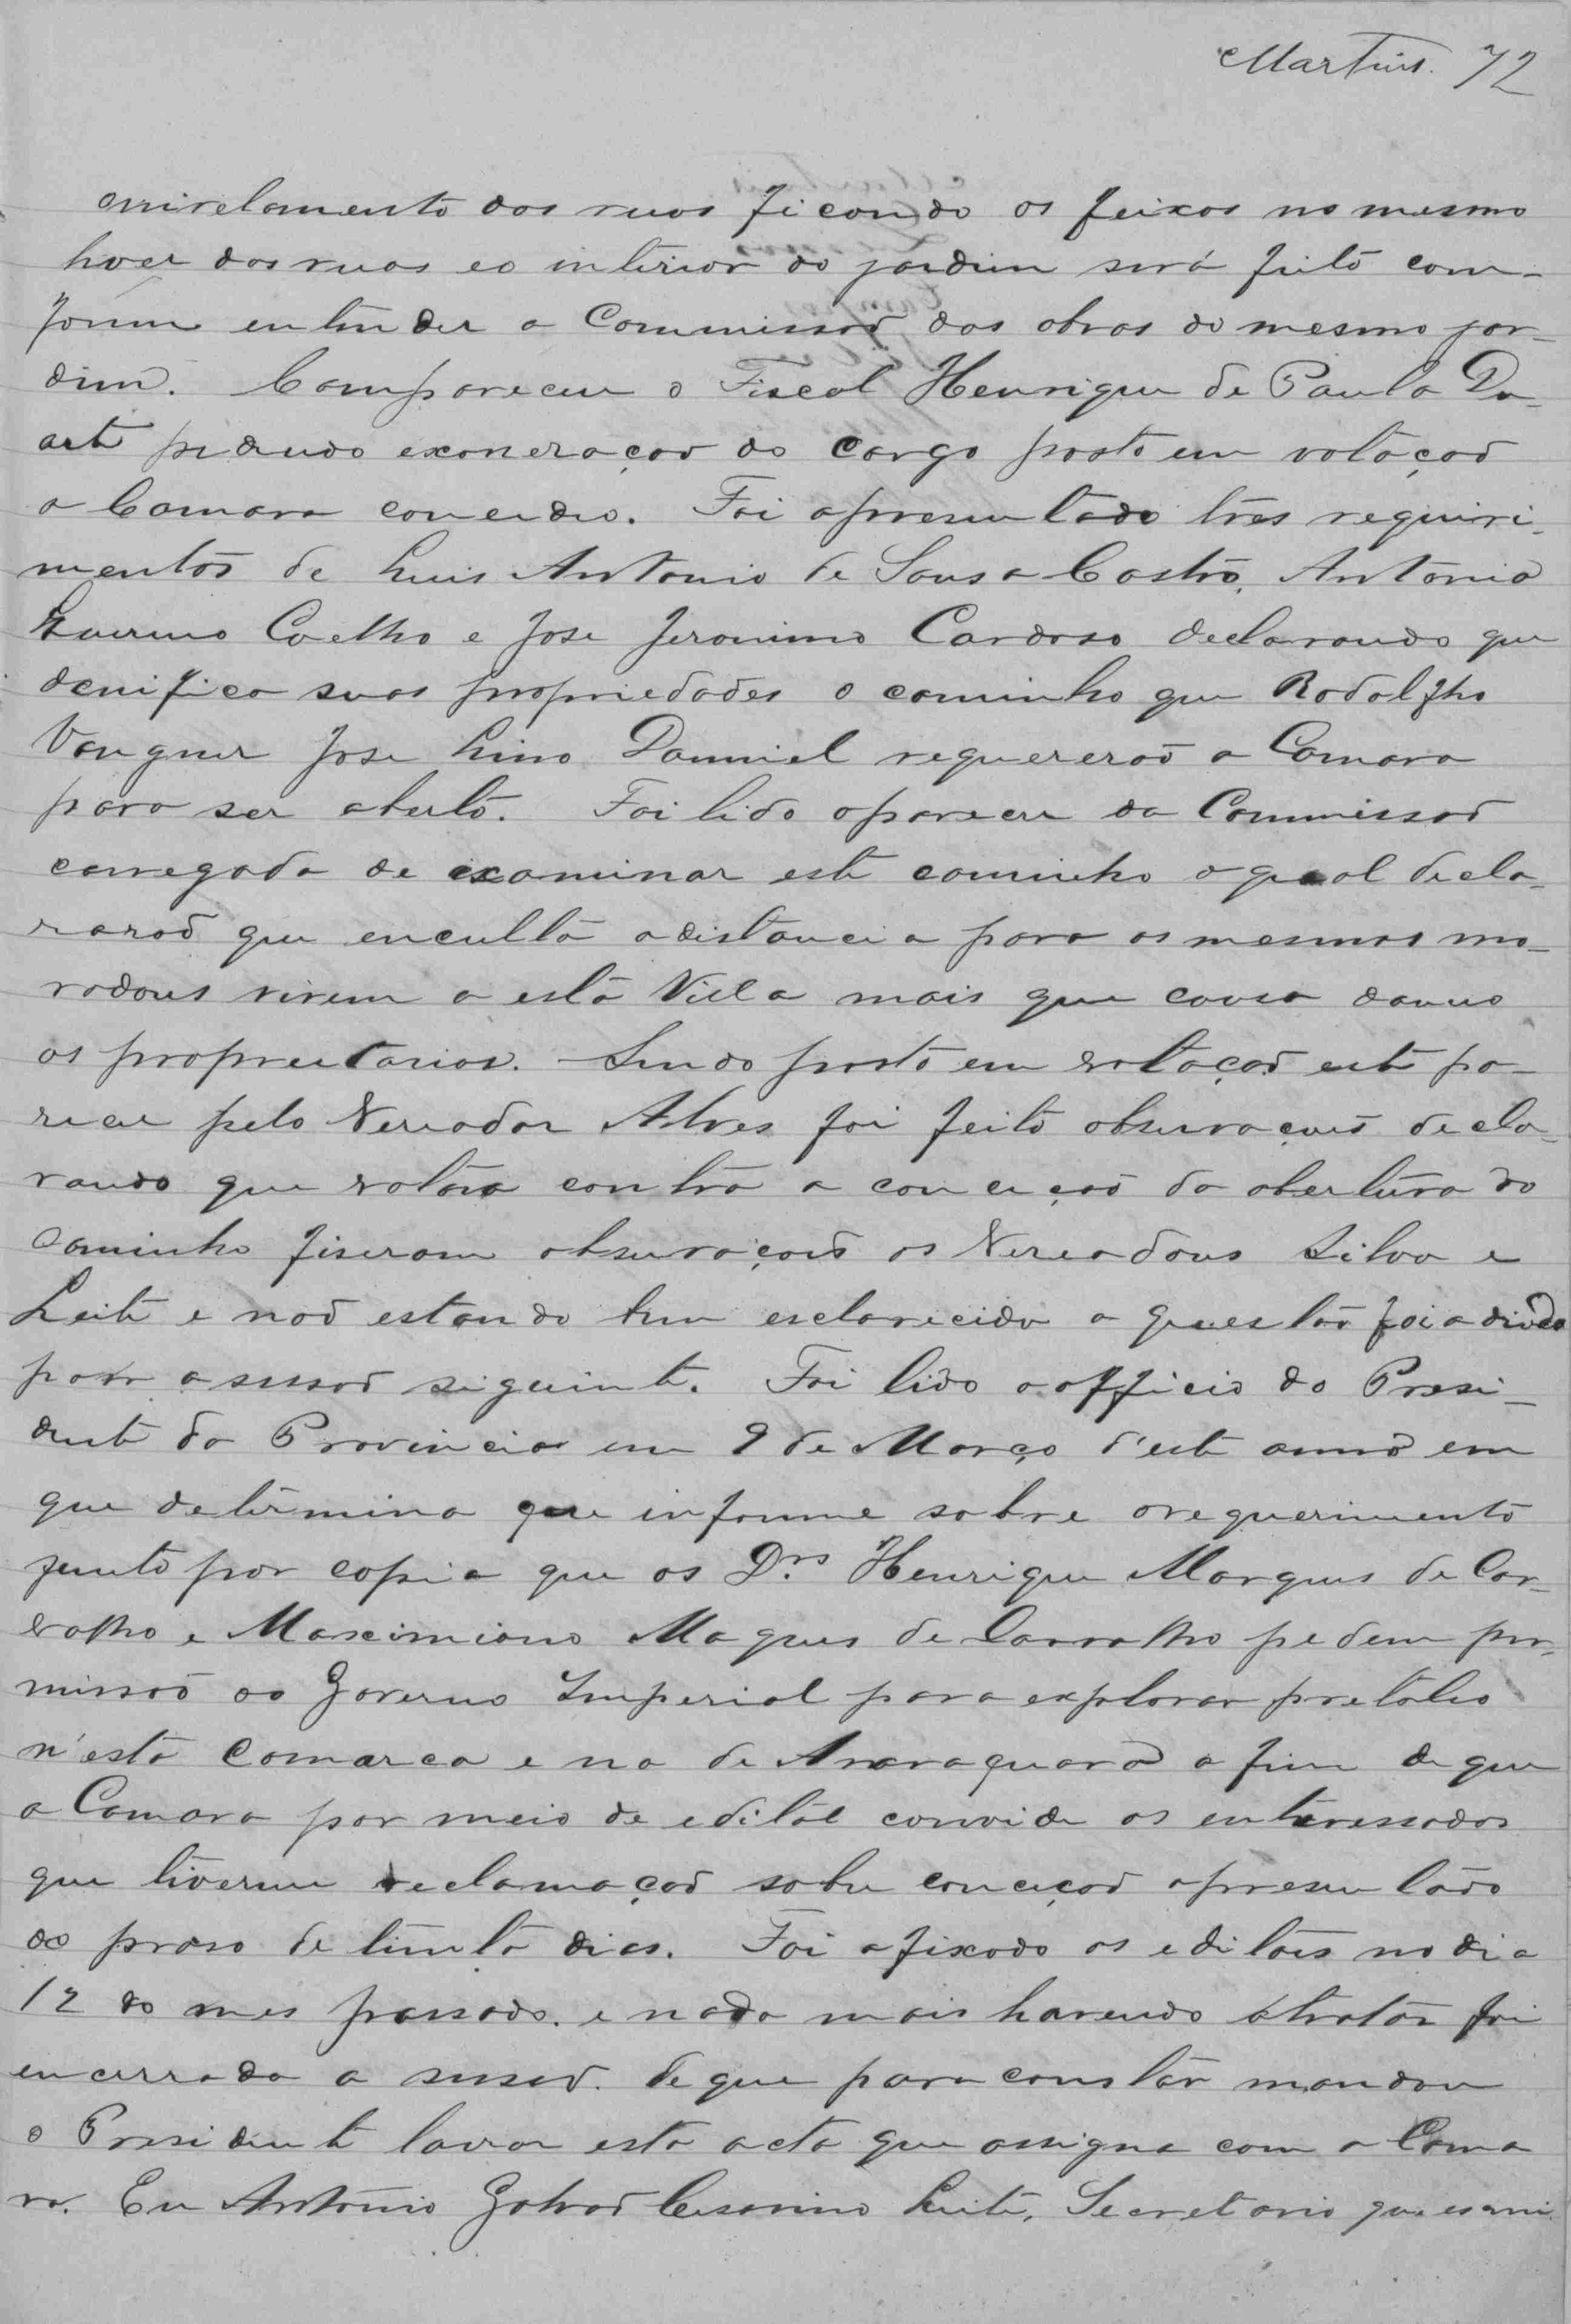 Martins. 72
annivelamento das ruas ficando os feixos no mesmo
livel das ruas e o interior do jardim será feito com-
forme entender a Commissaõ das obras do mesmo jar-
dim. Compareceu o Fiscal Henrique de Paula Du-
arte pidindo exoneraçaõ do cargo posto em votaçaõ
a Camara concedeo. Foi apresentado tres requiri-
mentos de Luis Antonio de Sousa Castro, Antonio
Guerino Coelho e Jose Jeronimo Cardoso declarando que
denifica suas propriedades o caminho que Rodolfho
Vangner Jose Lino Danniel requereraõ a Camara
para ser aberto. Foi lido o parecer da Commissaõ
carregada de examinar este caminho o qual decla-
raraõ que enculta a distancia para os mesmos mo-
radores virem a esta Villa mais que causa danno
os proprietarios. Sendo posto em votaçaõ este pa-
recer pelo Vereador Alves foi feito observaçoẽs decla-
rando que votava contra a conceçaõ da abertura do
caminho fiseram observaçoẽs os Vereadores Silva e
Leite e naõ estando bem esclarecida a questaõ foi adiada
para a sessaõ siguinte. Foi lido o officio do Presi-
dente da Provincia em 9 de Março d'este anno em
que determina que informe sobre o requerimento
junto por copia que os D.rs Henrique Marques de Car-
valho e Maximiano Maques de Carvalho pedem per-
missaõ ao Governo Imperial para explorar pretoleo
n'esta Comarca e na de Araraquara a fim de que
a Camara por meio de edital convide os enteressados
que tiverem reclamaçaõ sobre conceçaõ apresentado
no praso de trinta dias. Foi afixado os editaes no dia
12 do mes passado. e nada mais havendo atratar foi
encerrada a sessaõ. de que para constar mandou
o Presidente lavrar esta acta que assigna com a Cama
ra. Eu Antonio Galvaõ Cesarino Leite, Secretario que escrevi